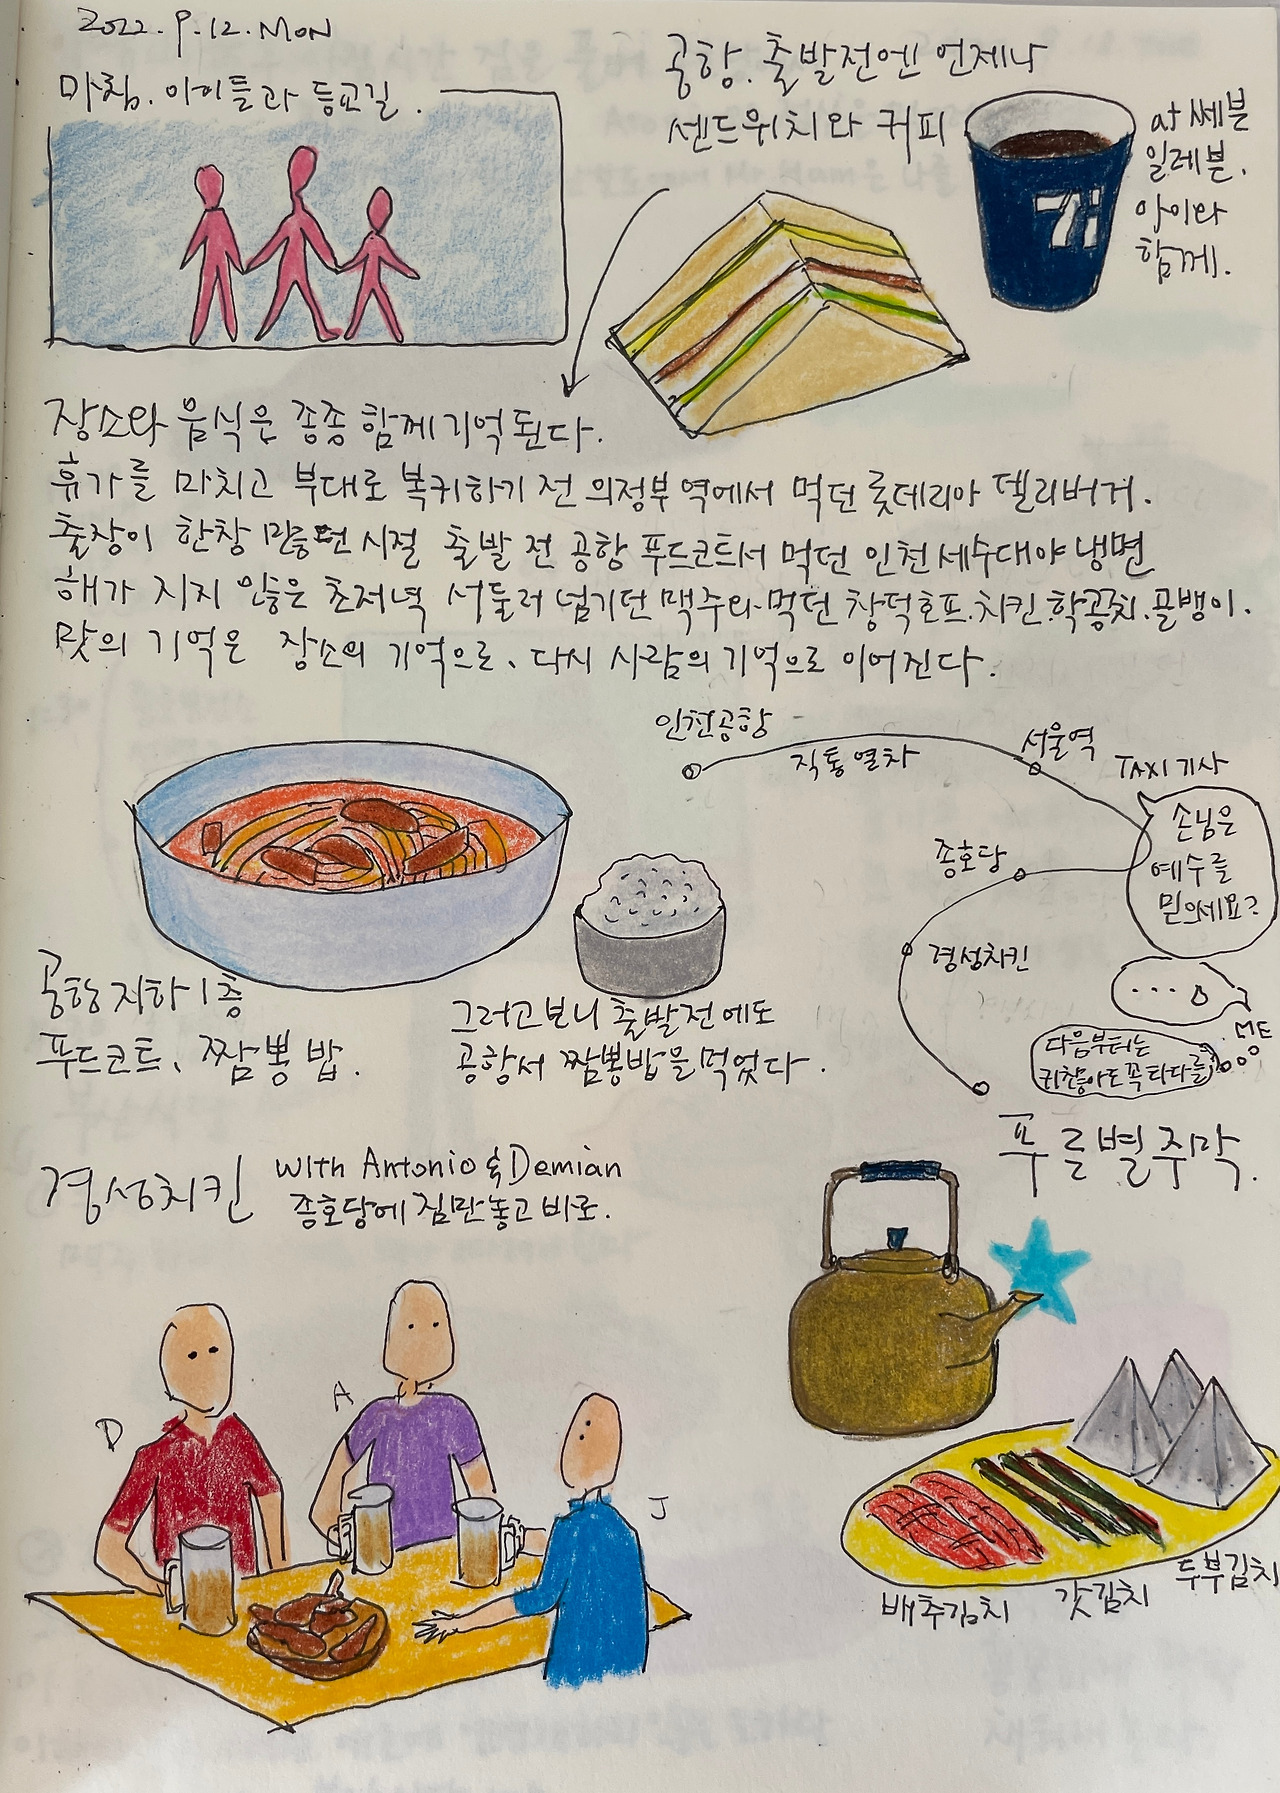 2022.9.12.MON
아침. 아이들과 등교길.
공항. 출발전엔 언제나
샌드위치와 커피
at 쎄븐
일레븐.
아이와
함께.
7i
장소와 음식은 종종 함께 기억된다.
휴가를 마치고 부대로 복귀하기 전 의정부역에서 먹던 롯데리아 델리버거.
출장이 한창 많던 시절 출발 전 공항 푸드코트서 먹던 인천 세숫대야 냉면
해가 지지 않은 초저녁 서둘러 넘기던 맥주와 먹던 창덕호프.치킨.학꽁치.골뱅이.
맛의 기억은 장소의 기억으로, 다시 사람의 기억으로 이어진다.
인천공항
직통열차
서울역
TAXI 기사
손님은
예수를
믿으세요?
종호당
경성치킨
ME
다음부터는
귀찮아도 꼭 타다를
공항 지하 1층
푸드코트, 짬뽕밥.
그러고보니 출발전에도
공항서 짬뽕밥을 먹었다.
푸른별주막.
경성치킨 with Antonio & Demian
종호당에 짐만 놓고 바로.
D
A
J
배추김치
갓김치
두부김치